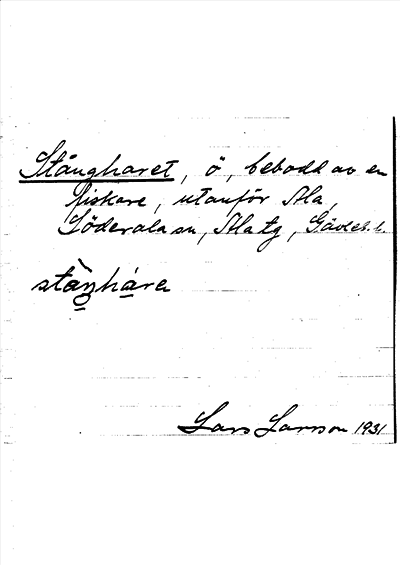 Stångharet, ö, bebodd av en
fiskare, utanför Ala,
Söderala sn, Ala tg, Gävleb. l.
stãn̯hára
Lars Larsson 1931